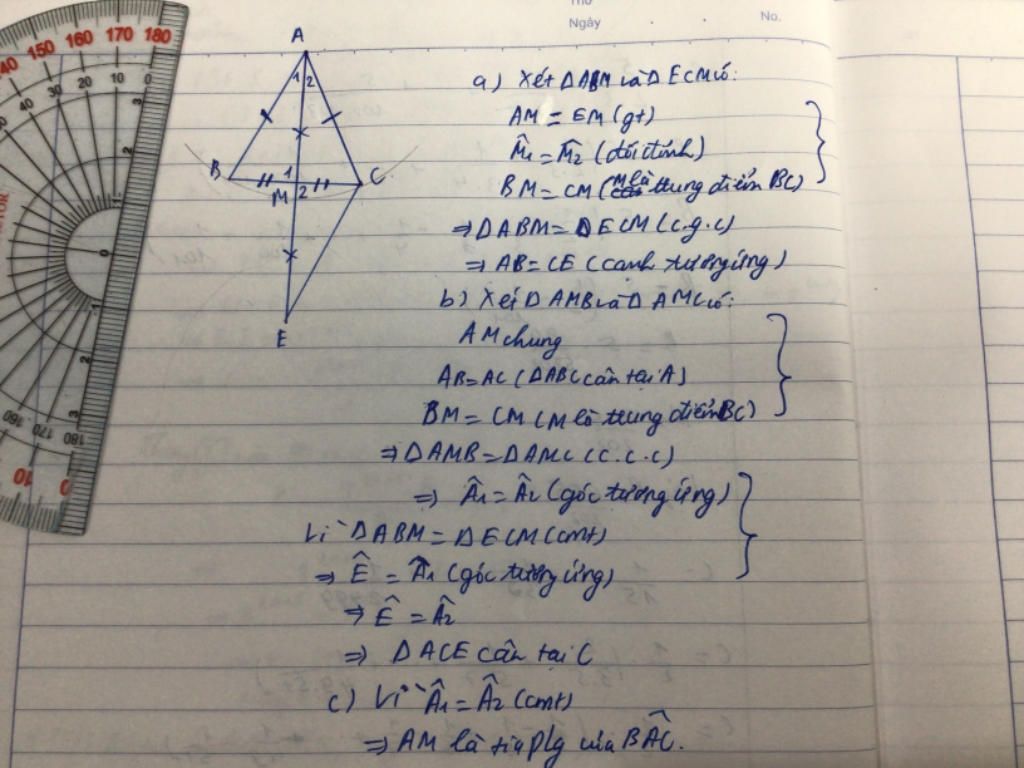 Thứ
Ngày
No.
180
170
160
150
140
A
1 2
B
1
M 2
C
E
a) Xét ΔABM và ΔECM có:
AM = EM (gt)
M̂₁ = M̂₂ (đối đỉnh)
BM = CM (M là trung điểm BC)
⇒ ΔABM = ΔECM (c.g.c)
⇒ AB = CE (cạnh tương ứng)
b) Xét ΔAMB và ΔAMC có:
AM chung
AB = AC (ΔABC cân tại A)
BM = CM (M là trung điểm BC)
⇒ ΔAMB = ΔAMC (c.c.c)
⇒ Â₁ = Â₂ (góc tương ứng)
Vì ΔABM = ΔECM (cmt)
⇒ Ê = Â₁ (góc tương ứng)
⇒ Ê = Â₂
⇒ ΔACE cân tại C
c) Vì Â₁ = Â₂ (cmt)
⇒ AM là tia p/g của BÂC.